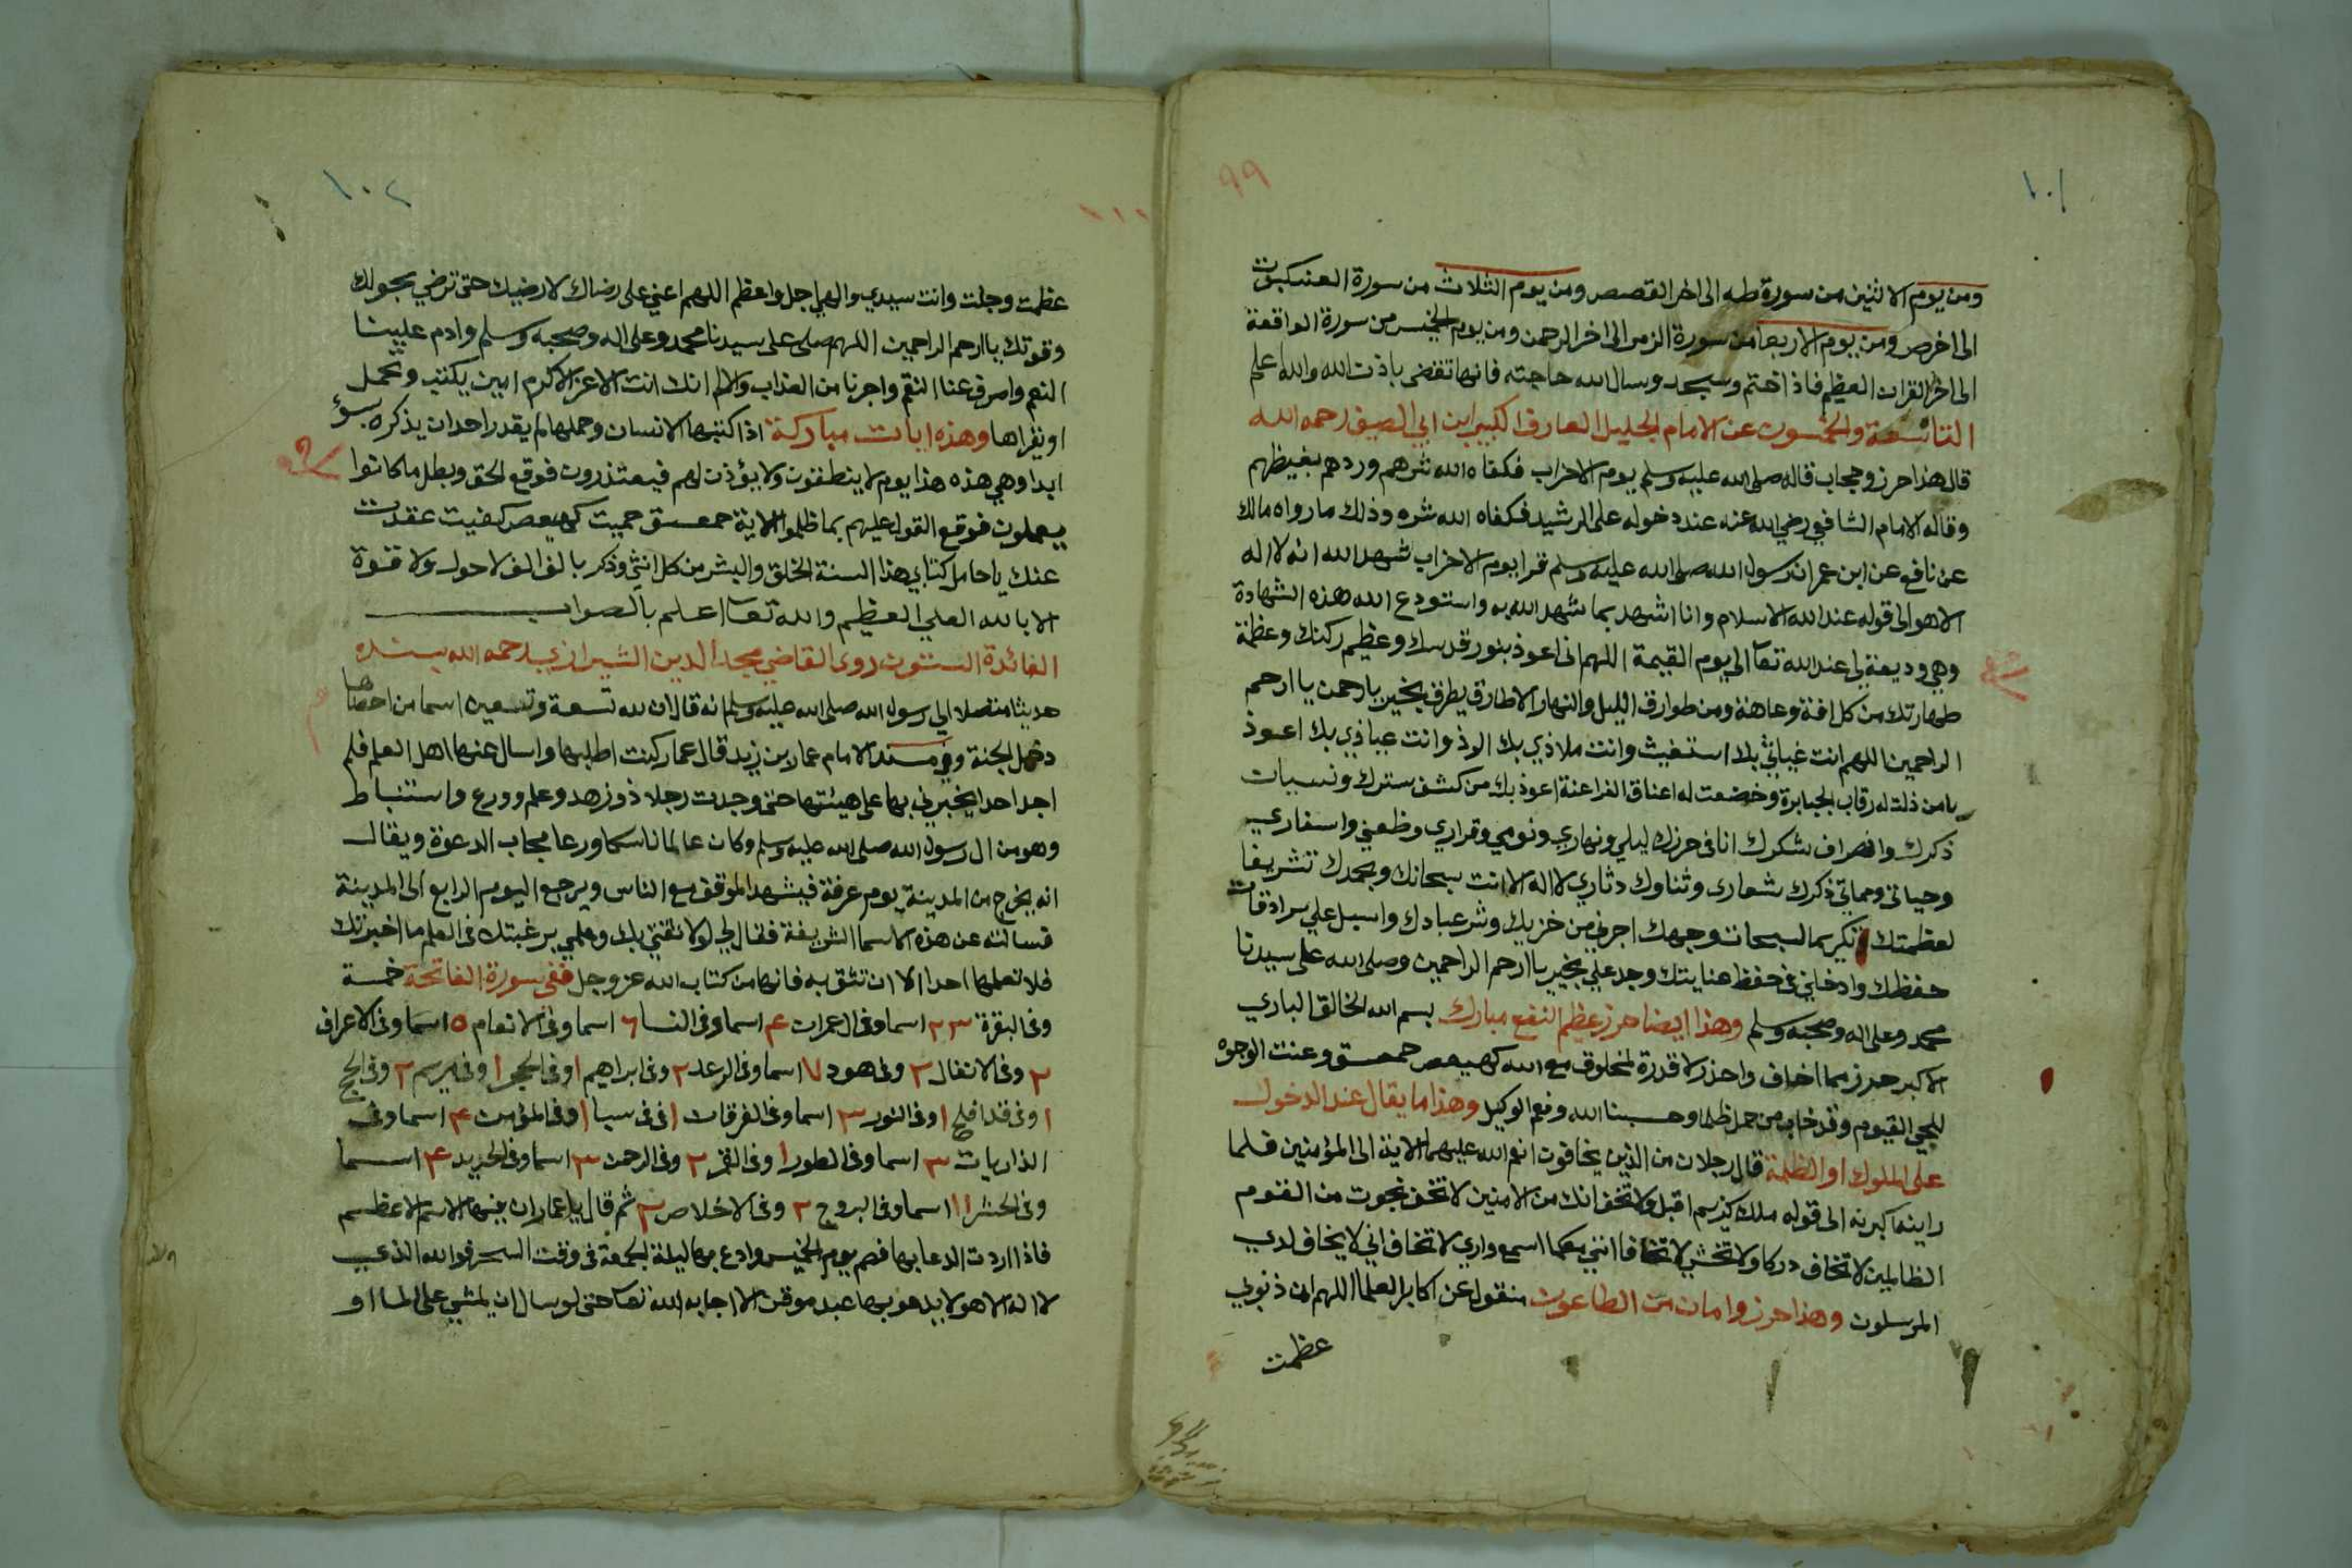 ١٠١
٩٩
ومن يوم الاثنين من سورة طه الى اخر القصص ومن يوم الثلاث من سورة العنكبوت
الى اخر ص ومن يوم الاربعا من سورة الزمر الى اخر الرحمن ومن يوم الخميس من سورة الواقعة
الى اخر القران العظيم فاذا ختم وسجد وسال الله حاجته فانها تقضى باذن الله والله اعلم
التاسعة والخمسون عن الامام الجليل العارف الكبير ابن ابي الصيف رحمه الله
قال هذا حرز وحجاب قاله صلى الله عليه وسلم يوم الاحزاب فكفاه الله شرهم وردهم بغيظهم
وقاله الامام الشافعي رضي الله عنه عند دخوله على الرشيد فكفاه الله شره وذلك ما رواه مالك
عن نافع عن ابن عمر ان رسول الله صلى الله عليه وسلم قرا يوم الاحزاب شهد الله انه لا اله
الا هو الى قوله عند الله الاسلام وانا اشهد بما شهد الله به واستودع الله هذه الشهادة
وهي وديعة لي عند الله تعا الى يوم القيمة اللهم اني اعوذ بنور قدسك وعظيم ركنك وعظمة
طهارتك من كل افة وعاهة ومن طوارق الليل والنهار الا طارق يطرق بخير يا رحمن يا ارحم
الراحمين اللهم انت غياثي بك استغيث وانت ملاذي بك الوذ وانت عياذي بك اعوذ
يا من ذلت له رقاب الجبابرة وخضعت له اعناق الفراعنة اعوذ بك من كشف سترك ونسيات
ذكرك وانصراف شكرك انا في حرزك ليلي ونهاري ونومي وقراري وظعني واسفاري
وحياتي ومماتي ذكرك شعاري وثناوك دثاري لا اله الا انت سبحانك وبحمدك تشريفا
لعظمتك تكريما لسبحات وجهك اجرني من خزيك وشر عبادك واسبل علي سرادقات
حفظك وادخلني في حفظ عنايتك وجد علي بخير يا ارحم الراحمين وصلى الله على سيدنا
محمد وعلى اله وصحبه وسلم وهذا ايضا حرز عظيم النفع مبارك بسم الله الخالق الباري
الاكبر حرز مما اخاف واحذر لا قدرة لمخلوق مع الله كهيعص حمعسق وعنت الوجوه
للحي القيوم وقد خاب من حمل ظلما وحسبنا الله ونعم الوكيل وهذا ما يقال عند الدخول
على الملوك او الظلمة قال رجلان من الذين يخافون انعم الله عليهما الاية الى المؤمنين فلما
راينه اكبرنه الى قوله ملك كريم اقبل ولا تخف انك من الامنين لا تخف نجوت من القوم
الظالمين لا تخاف دركا ولا تخشى لا تخافا انني معكما اسمع واري لا تخف اني لا يخاف لدي
المرسلون وهذا حرز وامان من الطاعون منقول عن اكابر العلما اللهم ان ذنوبي
عظمت
١٠٢
عظمت وجلت وانت سيدي والهي اجل واعظم اللهم اعني على رضاك لارضيك حتى ترضي بحولك
وقوتك يا ارحم الراحمين اللهم صلى على سيدنا محمد وعلى اله وصحبه وسلم وادم علينا
النعم واصرف عنا النقم واجرنا من العذاب والالم انك انت الاعز الاكرم امين يكتب وتحمل
او يقراها وهذه ايات مباركة اذا كتبها الانسان وحملها لم يقدر احد ان يذكره بسؤ
ابدا وهي هذه هذا يوم لا ينطقون ولا يؤذن لهم فيعتذرون فوقع الحق وبطل ما كانوا
يعملون فوقع القول عليهم بما ظلموا الاية حمعسق حميت كهيعص كفيت عقدت
عنك يا حامل كتابي هذا السنة الخلق والبشر من كل انثى وذكر بالف الف لا حول ولا قوة
الا بالله العلي العظيم والله تعا اعلم بالصواب
الفائدة الستون روى القاضي مجد الدين الشيرازي رحمه الله بسنده
حديثا متصلا الي رسول الله صلى الله عليه وسلم انه قال ان لله تسعة وتسعين اسما من احصاها
دخل الجنة وفي مسند الامام عمار بن زيد قال عمار كنت اطلبها واسال عنها اهل العلم فلم
اجد احدا يخبرني بها على هيئتها حتى وجدت رجلا ذو زهد وعلم وورع واستنباط
وهو من ال رسول الله صلى الله عليه وسلم وكان عالما ناسكا ورعا مجاب الدعوة ويقال
انه يخرج من المدينة يوم عرفة فيشهد الموقف مع الناس ويرجع اليوم الرابع الى المدينة
فسالته عن هذه الاسما الشريفة فقال لي لولا ثقتي بك وعلمي برغبتك في العلم ما اخبرتك
فلا تعلمها احدا الا ان تثق به فانها من كتاب الله عز وجل ففي سورة الفاتحة خمسة
وفي البقرة ٢٣ اسما وفي ال عمرات ٤ اسما وفي النسا ٦ اسما وفي الانعام ٥ اسما وفي الاعراف
٢ وفي الانفال ٢ وفي هود ٧ اسما وفي الرعد ٢ وفي ابراهيم ١ وفي الحجر ١ وفي مريم ٢ وفي الحج
١ وفي قد افلح ١ وفي النور ٣ اسما وفي الفرقان ١ في سبا ١ وفي المؤمن ٤ اسما وفي
الذاريات ٣ اسما وفي الطور ١ وفي القمر ٢ وفي الرحمن ٣ اسما وفي الحديد ٤ اسما
وفي الحشر ١١ اسما وفي البروج ٢ وفي الاخلاص ٢ ثم قال يا عمار ان فيها الاسم الاعظم
فاذا اردت الدعا بها فصم يوم الخميس وادع بها ليلة الجمعة في وقت السحر فوالله الذي
لا اله الا هو لا يدعو بها عبد موقن الا اجابه الله تعا حتى لو سال ان يمشي على الما او